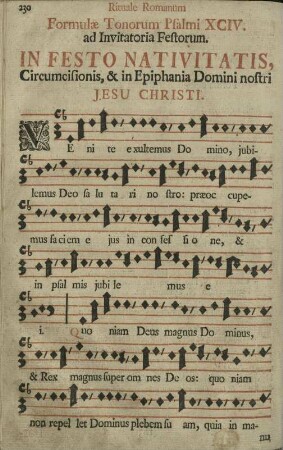 230 Rituale Romanum
Formulæ Tonorum Psalmi XCIV.
ad Invitatoria Festorum.
IN FESTO NATIVITATIS,
Circumcisionis, & in Epiphania Domini nostri
JESU CHRISTI.
VE ni te exultemus Do mino, jubi-
lemus Deo sa lu ta ri no stro: præoc cupe-
mus faciem e jus in con fes si o ne, &
in psal mis jubi le mus e
i. Quo niam Deus magnus Do minus,
& Rex magnus super om nes De os: quo niam
non repel let Dominus plebem su am, quia in ma-